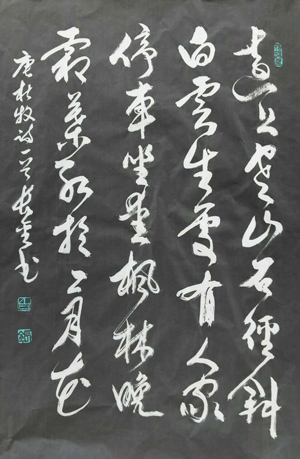 遠上寒山石徑斜
白雲生處有人家
停車坐愛楓林晚
霜葉紅於二月花
唐杜牧詩